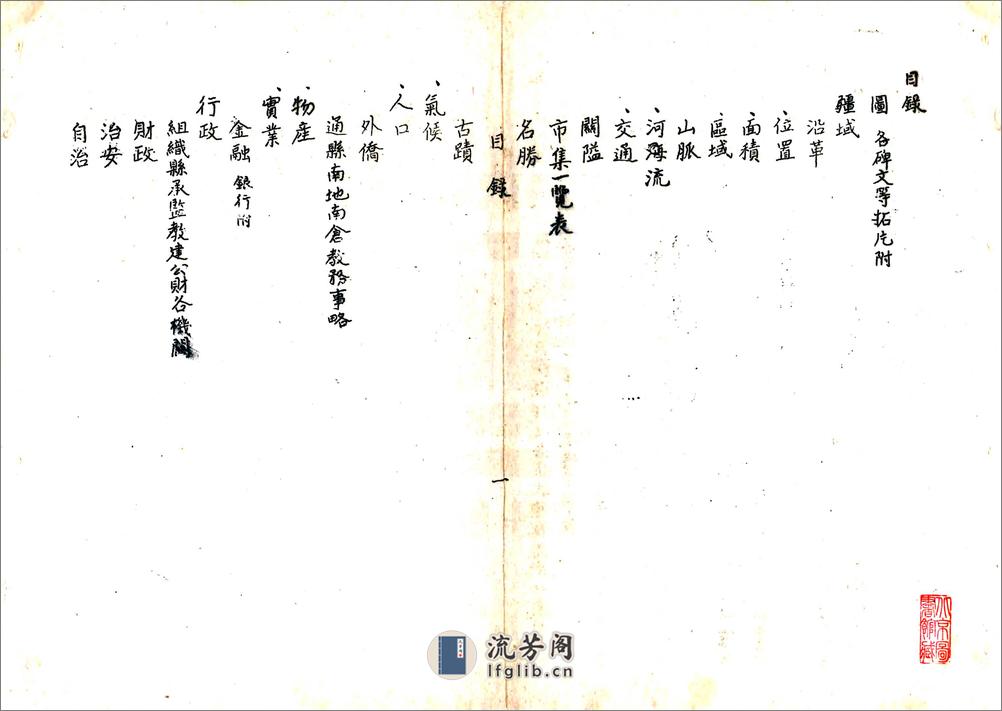 目錄
圖 各碑文等拓片附
疆域
沿革
位置
、面積
、區域
山脈
、河海流
、交通
關隘
市集一覽表
名勝
目錄 一
古蹟
、氣候
、人口
外僑
通縣南地南倉教務事略
、物產
、實業
金融 銀行附
行政
組織縣承監教建公財各機關
財政
治安
自治
北京圖書館藏
流芳阁
lfglib.cn